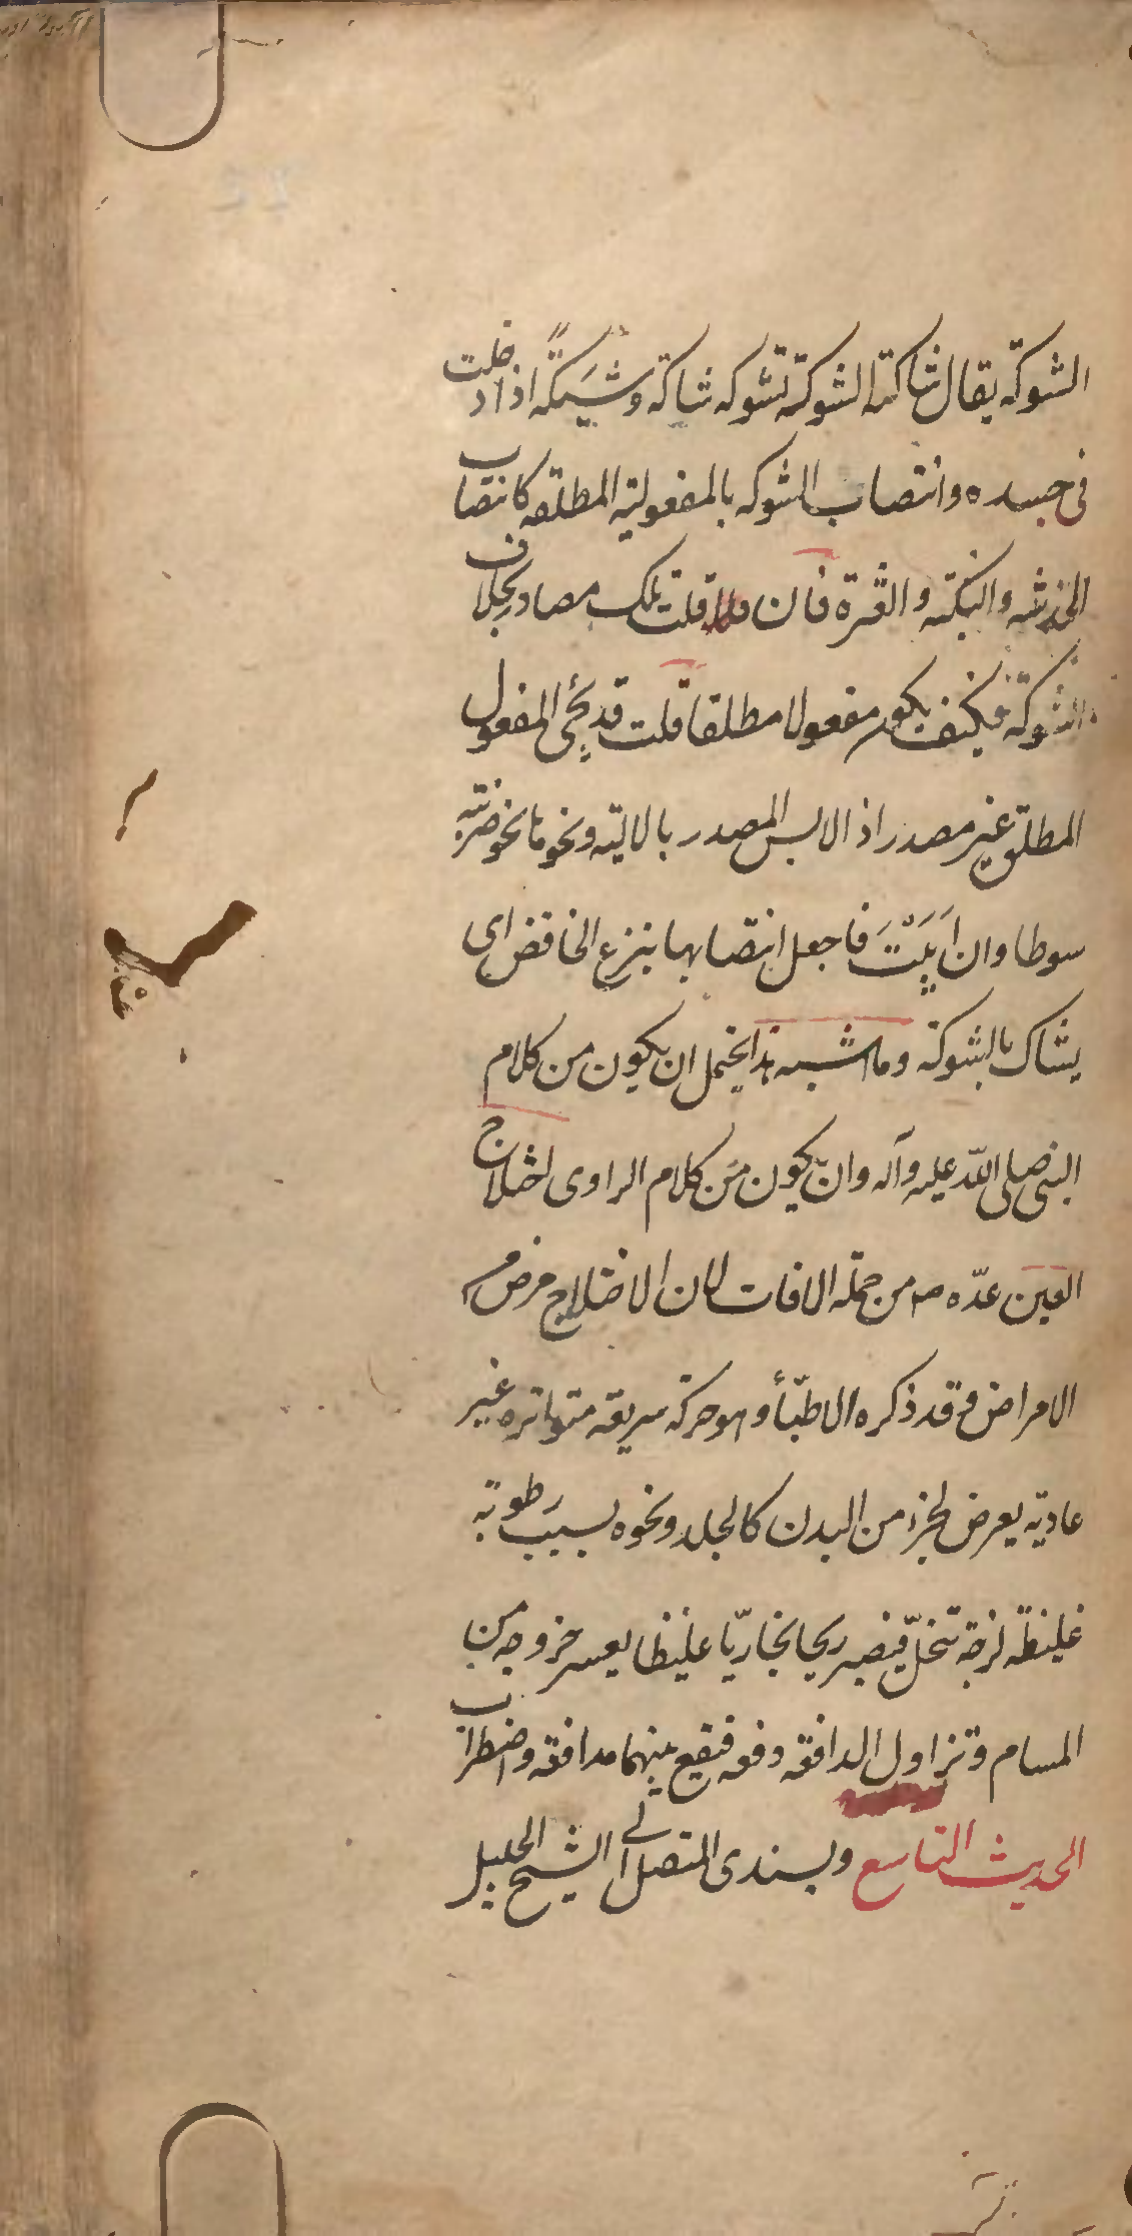 الشوكة يقال شاكته الشوكة تشوكه شاكة وشيكة اذا دخلت
فى جسده وانتصاب الشوكه بالمفعولية المطلقه كانتصاب
الخدشه والنكته والعثرة فان قلت تلك مصادر بخلاف
الشوكة فكيف يكون مفعولا مطلقا قلت قد يجئ المفعول
المطلق غير مصدر اذا لابس المصدر بالالية ونحوها نحو ضربته
سوطا وان اَبَيْتَ فاجعل انتصابها بنزع الخافض اى
يشاك بالشوكة وما اشبه هذا يحتمل ان يكون من كلام
النبى صلى اللّه عليه وآله وان يكون من كلام الراوى اختلاج
العين عدّه ص من جملة الافات لان الاختلاج مرض من
الامراض وقد ذكره الاطبّاء وهو حركة سريعة متواترة غير
عادية يعرض لجزء من البدن كالجلد ونحوه بسبب رطوبة
غليظة لزجة تنحلّ فيصير ريحا بخاريّا غليظا يعسر خروجه من
المسام وتزاول الدافعة دفعه فتقع بينهما مدافعة واضطراب
الحديث التاسع وبسندى المتصل الى الشيخ الجليل